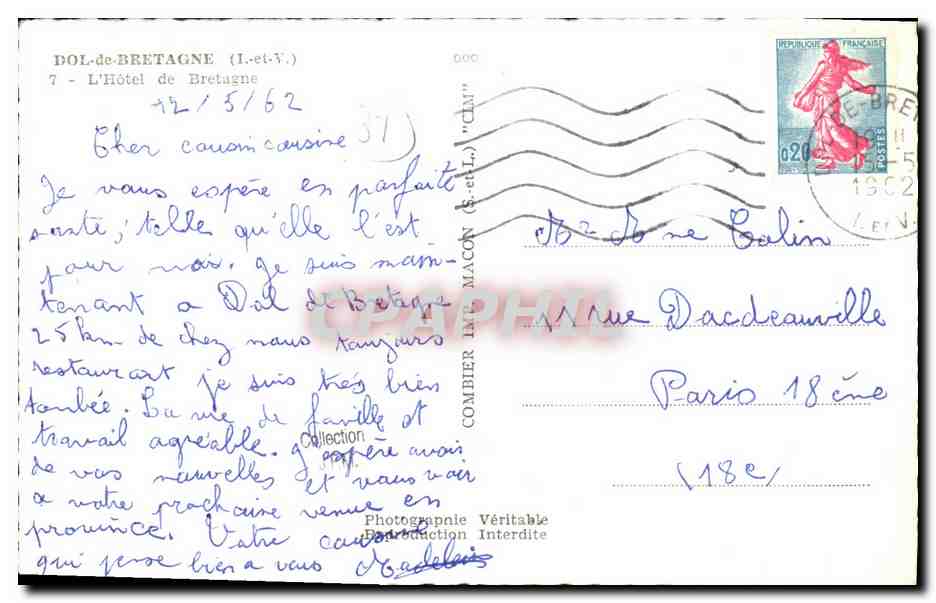 DOL-de-BRETAGNE (I.-et-V.)
7 - L'Hôtel de Bretagne
12/5/62
37
Cher cousin cousine
Je vous espère en parfaite
santé, telle qu'elle l'est
pour moi. Je suis main-
tenant a Dol de Bretagne
25 km de chez nous toujours
restaurant je suis très bien
tombée. La vie de famille et
travail agréable. J'espère avoir
de vos nouvelles et vous voir
a votre prochaine venue en
province. Votre cousine
qui pense bien a vous Madeleine
COMBIER IMP. MACON (S.-et-L.) "CIM"
Photographie Véritable
Reproduction Interdite
Collection
CPAPHIL
REPUBLIQUE FRANÇAISE
0,20
POSTES
DE-BRET
1962
I.-ET-V.
Mr Mme Colin
11 rue Dacdeauville
Paris 18ème
(18e)